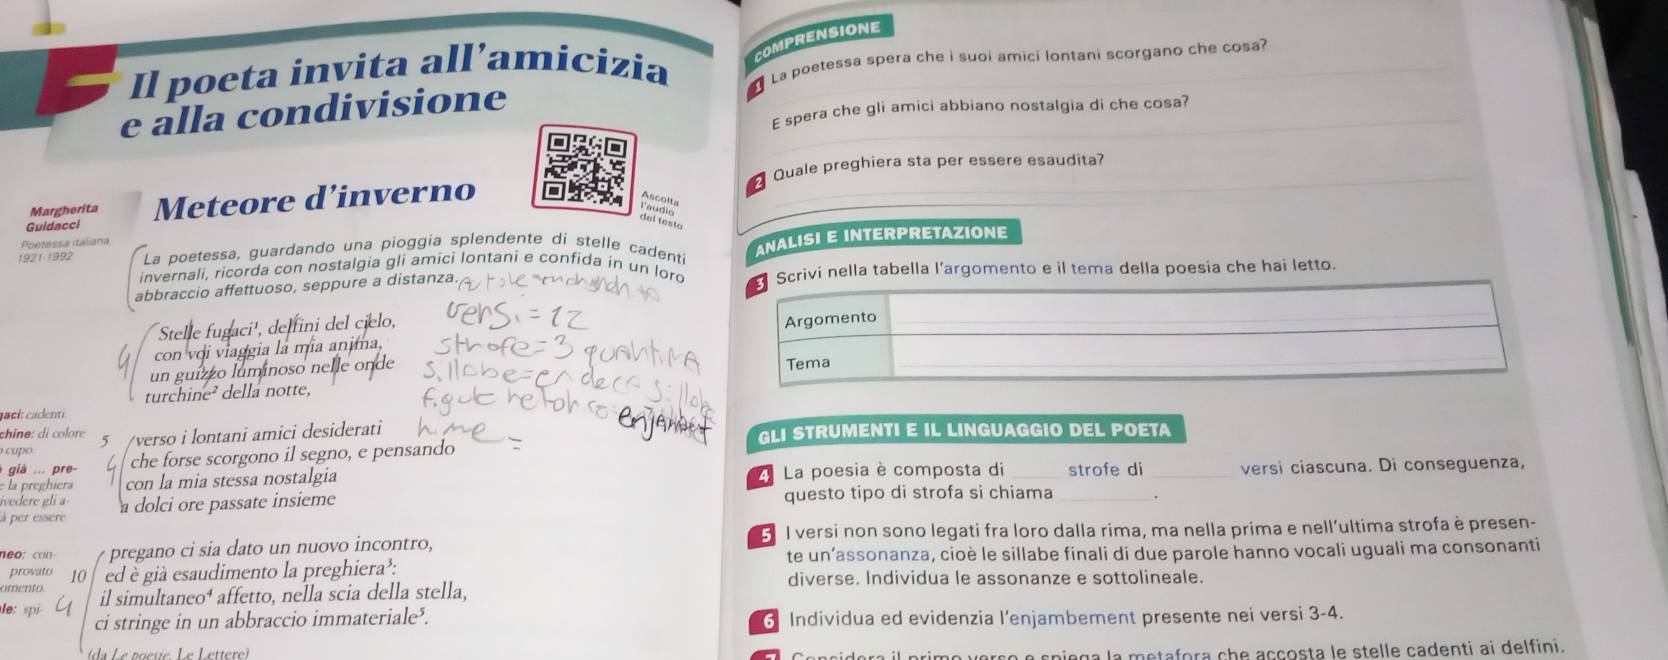 Il poeta invita all'amicizia
e alla condivisione
Margherita
Guidacci
Poetessa italiana,
1921-1992
Meteore d'inverno
Ascolta
l'audio
del testo
La poetessa, guardando una pioggia splendente di stelle cadenti
invernali, ricorda con nostalgia gli amici lontani e confida in un loro
abbraccio affettuoso, seppure a distanza.
Stelle fugaci¹, delfini del cielo,
con voi viaggia la mia anima,
un guizzo luminoso nelle onde
turchine² della notte,
versi = 12
strofe = 3 quartina
sillabe = endecasillabe
figure retorice = enjambent
rime =
4
gaci: cadenti.
chine: di colore
o cupo.
è già ... pre-
e la preghiera
ivedere gli a-
à per essere
5 verso i lontani amici desiderati
che forse scorgono il segno, e pensando
con la mia stessa nostalgia
a dolci ore passate insieme
4
neo: con-
provato
omento.
le: spi-
pregano ci sia dato un nuovo incontro,
10 ed è già esaudimento la preghiera³:
il simultaneo⁴ affetto, nella scia della stella,
ci stringe in un abbraccio immateriale⁵.
4
(da Le poesie, Le Lettere)
COMPRENSIONE
1 La poetessa spera che i suoi amici lontani scorgano che cosa?
E spera che gli amici abbiano nostalgia di che cosa?
2 Quale preghiera sta per essere esaudita?
ANALISI E INTERPRETAZIONE
3 Scrivi nella tabella l'argomento e il tema della poesia che hai letto.
Argomento
Tema
GLI STRUMENTI E IL LINGUAGGIO DEL POETA
4 La poesia è composta di ______ strofe di ________ versi ciascuna. Di conseguenza,
questo tipo di strofa si chiama _________.
5 I versi non sono legati fra loro dalla rima, ma nella prima e nell'ultima strofa è presen-
te un'assonanza, cioè le sillabe finali di due parole hanno vocali uguali ma consonanti
diverse. Individua le assonanze e sottolineale.
6 Individua ed evidenzia l'enjambement presente nei versi 3-4.
7 Considera il primo verso e spiega la metafora che accosta le stelle cadenti ai delfini.